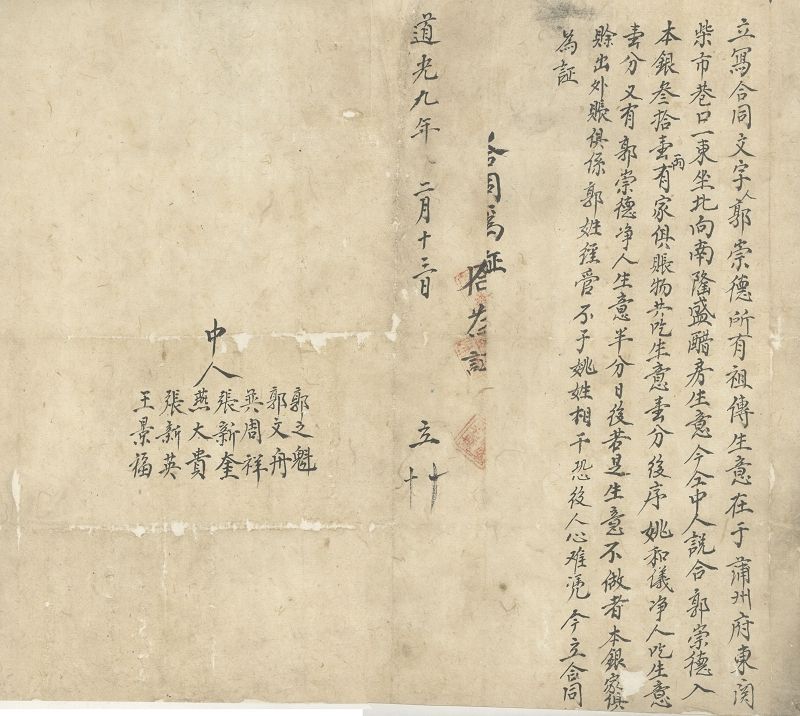 立寫合同文字人郭崇德所有祖傳生意在于蒲州府東関
柴市巷口一東坐北向南隆盛醋房生意今仝中人說合郭崇德入
本銀叁拾壹兩有家俱賬物共吃生意壹分後序姚和議净人吃生意
壹分又有郭崇德净人生意半分日後若是生意不做者本銀家俱
賒出外賬俱係郭姓經管不于姚姓相干恐後人心难凴今立合同
為証
合同為証
道光九年二月十三日 立 十
中人
郭之魁
郭文舟
吳周祥
張新奎
燕大貴
張新英
王景福